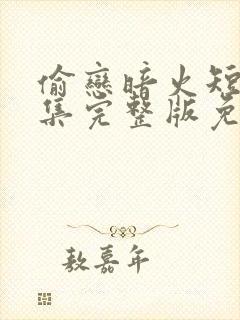 偷戀暗火短
集完整版免
敖嘉年